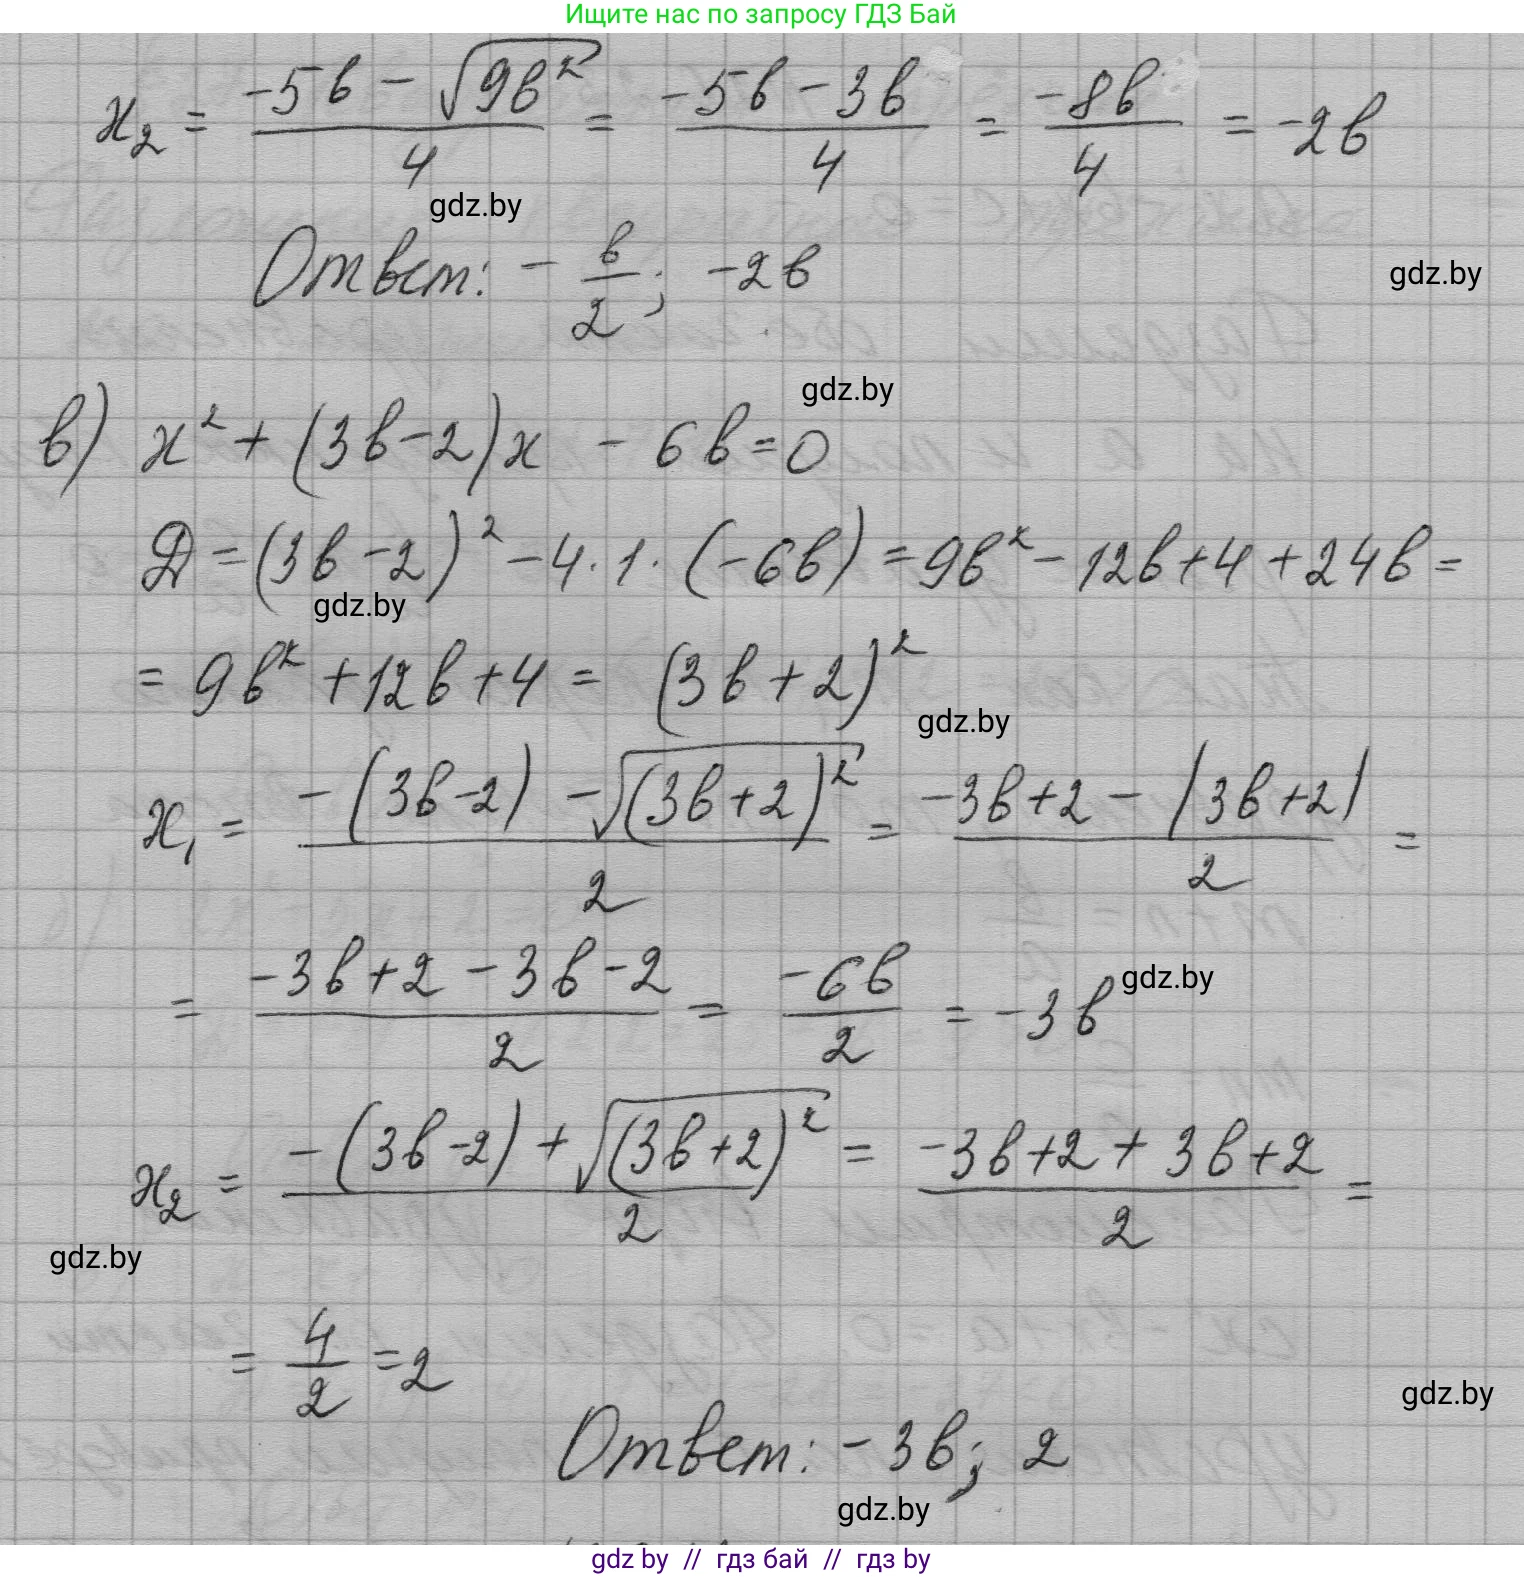 Ищите нас по запросу ГДЗ Бай
x₂ = (-5в - √(9в²))/4 = (-5в - 3в)/4 = (-8в)/4 = -2в
gdz.by
Ответ: - в/2; -2в
gdz.by
gdz.by
в) x² + (3в-2)x - 6в=0
Д = (3в-2)² - 4·1·(-6в) = 9в² - 12в+4 + 24в =
gdz.by
= 9в² + 12в+4 = (3в+2)²
gdz.by
x₁ = (-(3в-2) - √((3в+2)²))/2 = (-3в+2 - (3в+2))/2 =
= (-3в+2 - 3в-2)/2 = (-6в)/2 = -3в
gdz.by
x₂ = (-(3в-2) + √((3в+2)²))/2 = (-3в+2 + 3в+2)/2 =
gdz.by
= 4/2 = 2
gdz.by
Ответ: -3в; 2
gdz.by
gdz by // гдз бай // гдз by